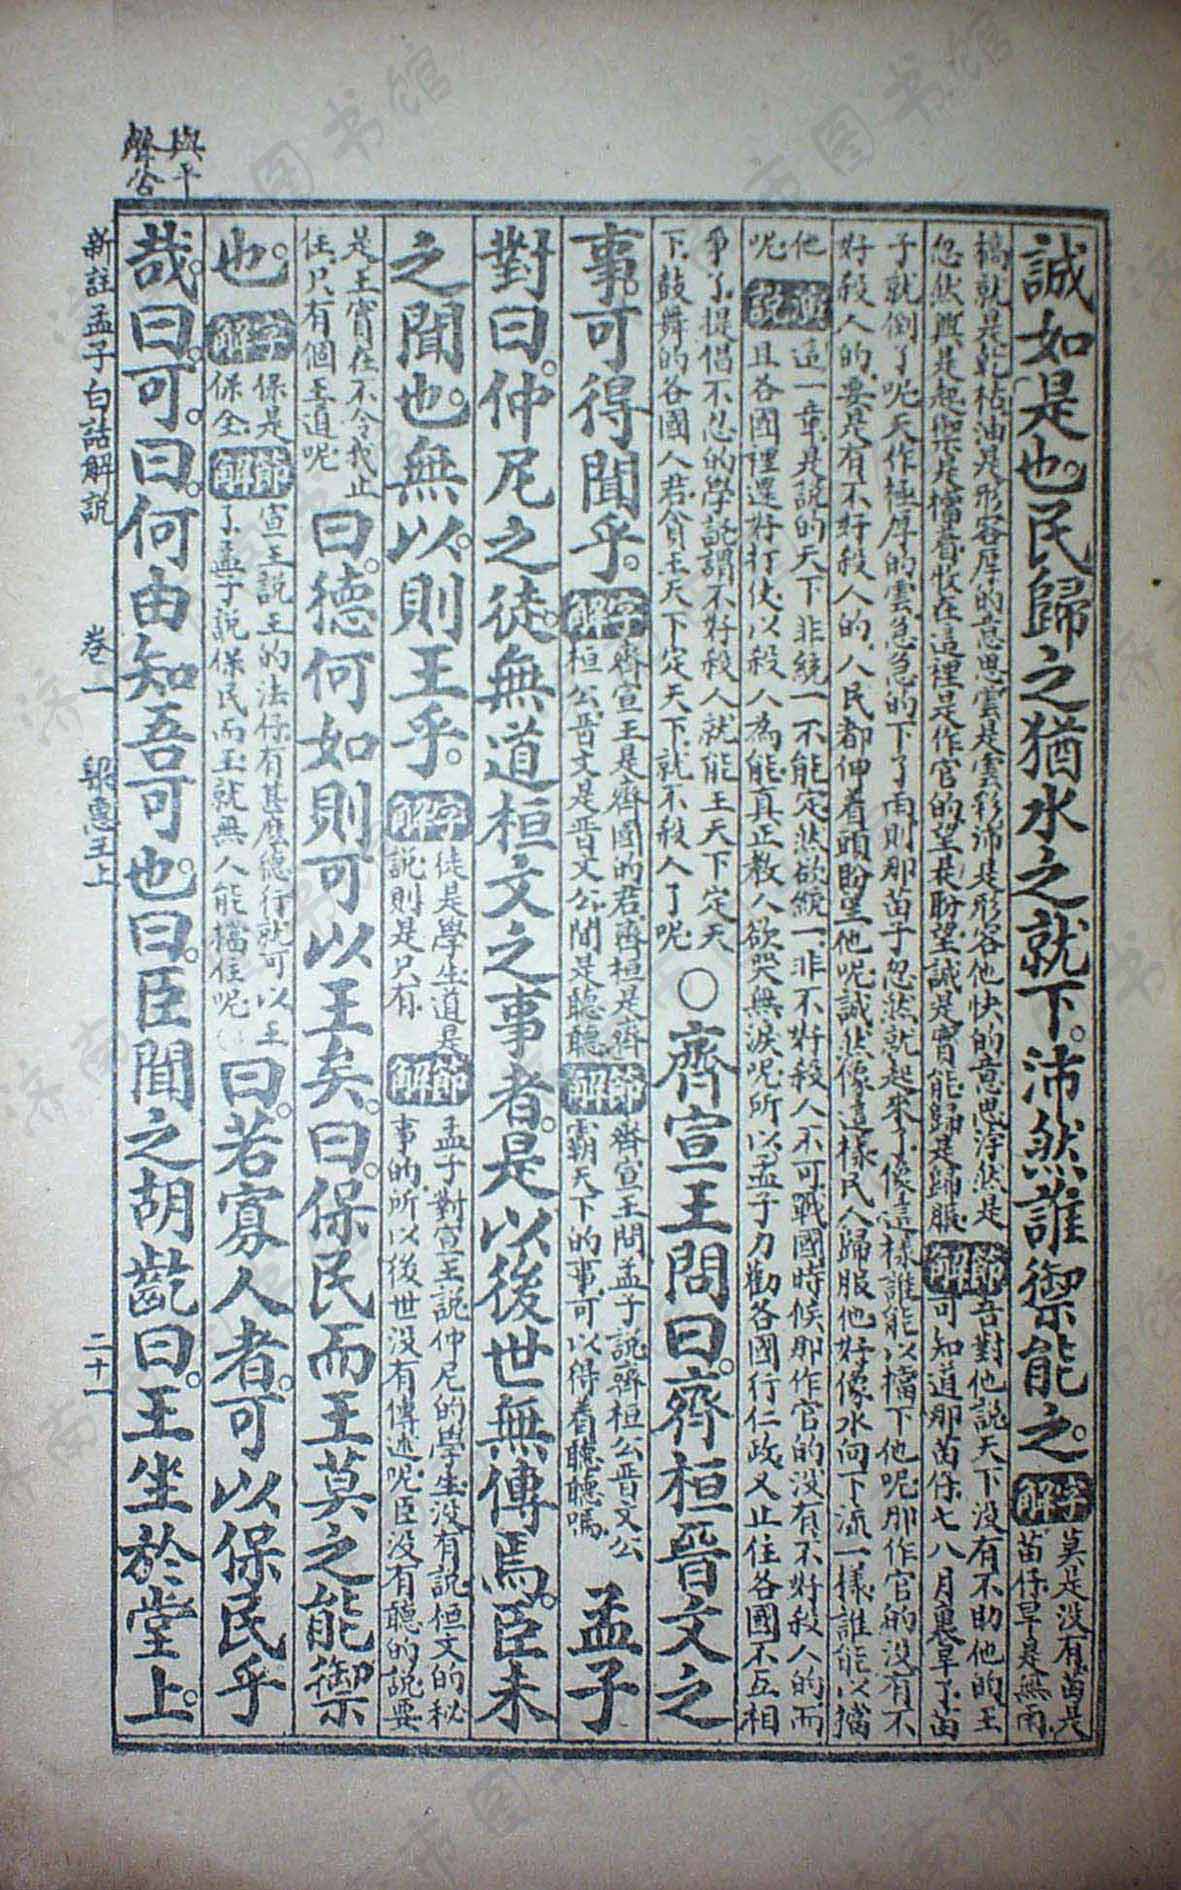 與平
聲公
誠如是也。民歸之猶水之就下。沛然誰禦能之。字解 莫是没有苗是
苗仔旱是無雨
槁就是乾枯油是形容厚的意思雲是雲彩沛是形容他快的意思浡然是
忽然興是起禦是擋着牧在這裡是作官的望是盼望誠是實能歸是歸服 節解 吾對他説天下没有不助他的王
可知道那苗仔七八月裏旱了苗
子就倒了呢天作極厚的雲急急的下了雨則那苗子忽然就起來了像這樣誰能以擋下他呢那作官的没有不
好殺人的要是有不好殺人的人民都伸着頭盼望他呢誠然像這樣民人歸服他好像水向下流一樣誰能以擋
他
呢 演説 這一章是説的天下非統一不能定然欲統一非不好殺人不可戰國時候那作官的没有不好殺人的而
且各國裡還好打仗以殺人為能真正教人欲哭無淚呢所以孟子力勸各國行仁政又止住各國不互相
爭了提倡不忍的學説謂不好殺人就能王天下定天
下鼓舞的各國人君貪王天下定天下就不殺人了呢 ○齊宣王問曰。齊桓晉文之
事。可得聞乎。字解 齊宣王是齊國的君齊桓是齊
桓公晉文是晉文公聞是聽聽 節解 齊宣王問孟子説齊桓公晉文公
霸天下的事可以得着聽聽嗎 孟子
對曰。仲尼之徒。無道桓文之事者。是以後世無傳焉。臣未
之聞也。無以。則王乎。字解 徒是學生道是
説則是只有 節解 孟子對宣王説仲尼的學生没有説桓文的秘
事的所以後世没有傳述呢臣没有聽的説要
是王實在不令我止
住只有個王道呢 曰。德何如則可以王矣。曰。保民而王莫之能禦
也。字解 保是
保全 節解 宣王説王的法仔有甚麽德行就可以王
了孟子説保民而王就無人能擋住呢 曰。若寡人者。可以保民乎
哉。曰。可。曰。何由知吾可也。曰。臣聞之胡齕曰。王坐於堂上。
新註孟子白話解説 卷一 梁惠王上 二十一